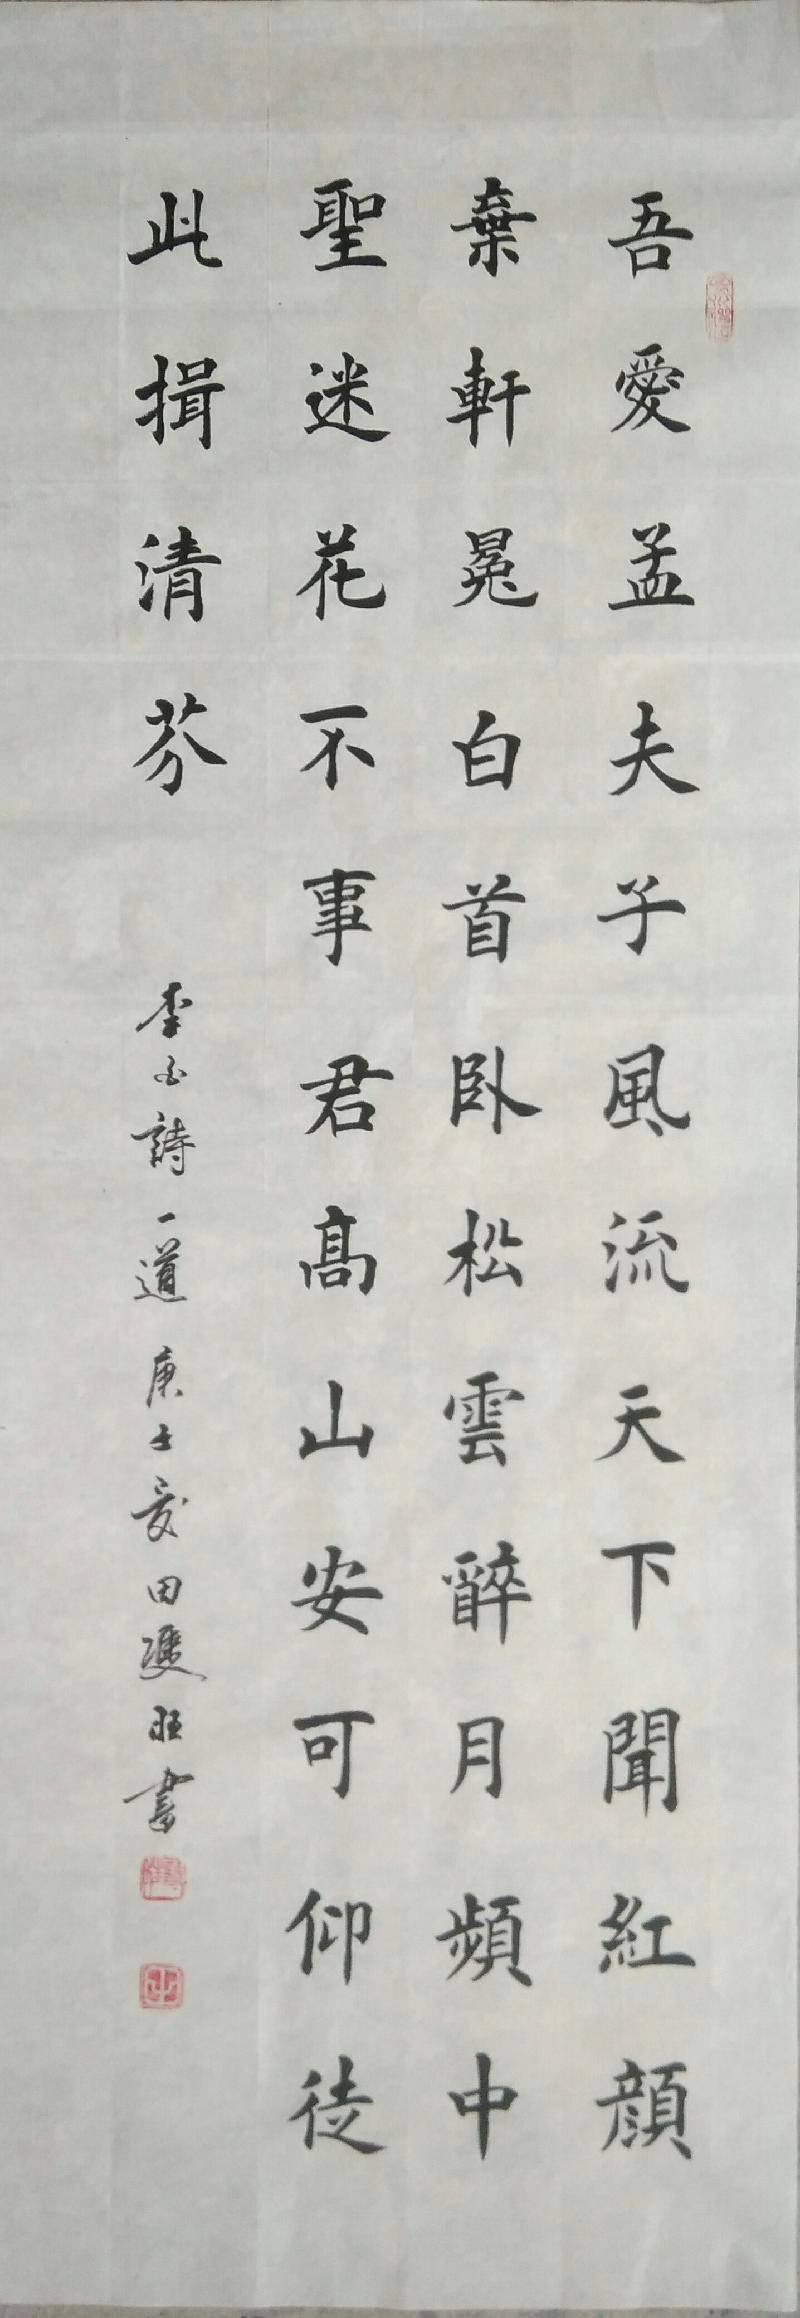 吾愛孟夫子風流天下聞紅顔
棄軒冕白首卧松雲醉月頻中
聖迷花不事君髙山安可仰徒
此揖清芬
李白詩一道庚子夏田雙旺書